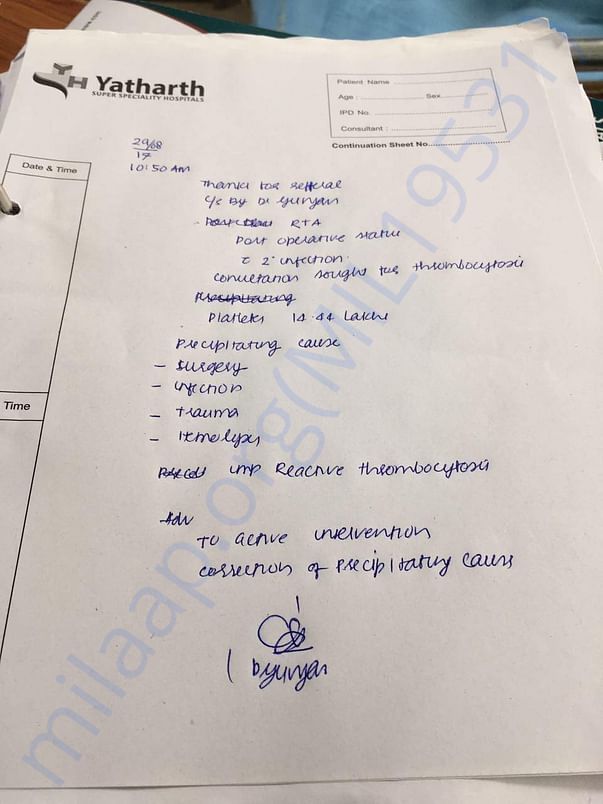 Yatharth
SUPER SPECIALITY HOSPITALS
Patient Name
Age : Sex
IPD No.
Consultant :
Continuation Sheet No.
Date & Time
29/08
17
10:50 AM
Thanks for referral
c/c By Dr Gunjan
RTA
Post operative status
c 2° infection
consultation sought for thrombocytosis
Precipitating
Platelets 14.44 Lakhs
Precipitating cause
- Surgery
- infection
- Trauma
- Hemolysis
imp Reactive thrombocytosis
Adv
To active intervention
correction of Precipitating causes
Time
milaap.org(MIL19531